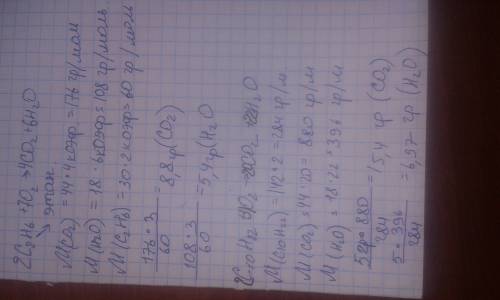 2C₂H₆+7O₂→4CO₂+6H₂O
этан.
M(CO₂) = 44·4коэф=176 гр/мол
M(H₂O) = 18·6коэф=108 гр/моль
M(C₂H₆) = 30·2коэф=60 гр/моль
176·3/60 = 8,8гр(CO₂)
108·3/60 = 5,4гр(H₂O
M(C₁₀H₂₂) = 142·2=284 гр/м
M(CO₂) = 44·20= 880 гр/м
M(H₂O) = 18·22=396 гр/м
5гр·880/284 = 15,4 гр (CO₂)
5·396/284 = 6,97 гр (H₂O)